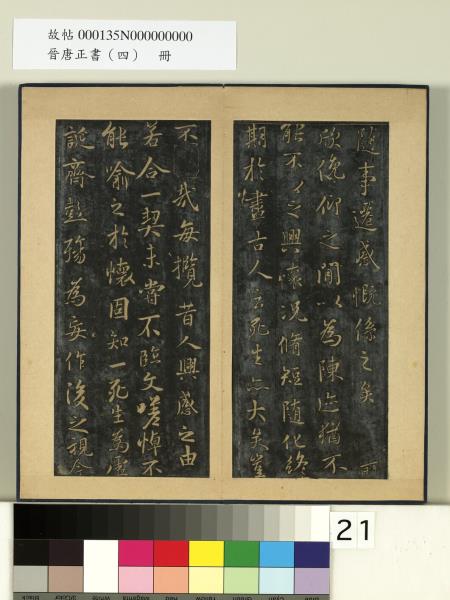 故帖 000135N000000000
晉唐正書（四） 冊
隨事遷感慨係之矣
欣俛仰之間以為陳迹猶不
能不以之興懷況脩短隨化終
期於盡古人云死生亦大矣豈
不 哉每攬昔人興感之由
若合一契未嘗不臨文嗟悼不
能喻之於懷固知一死生為虛
誕齊彭殤為妄作後之視今
21